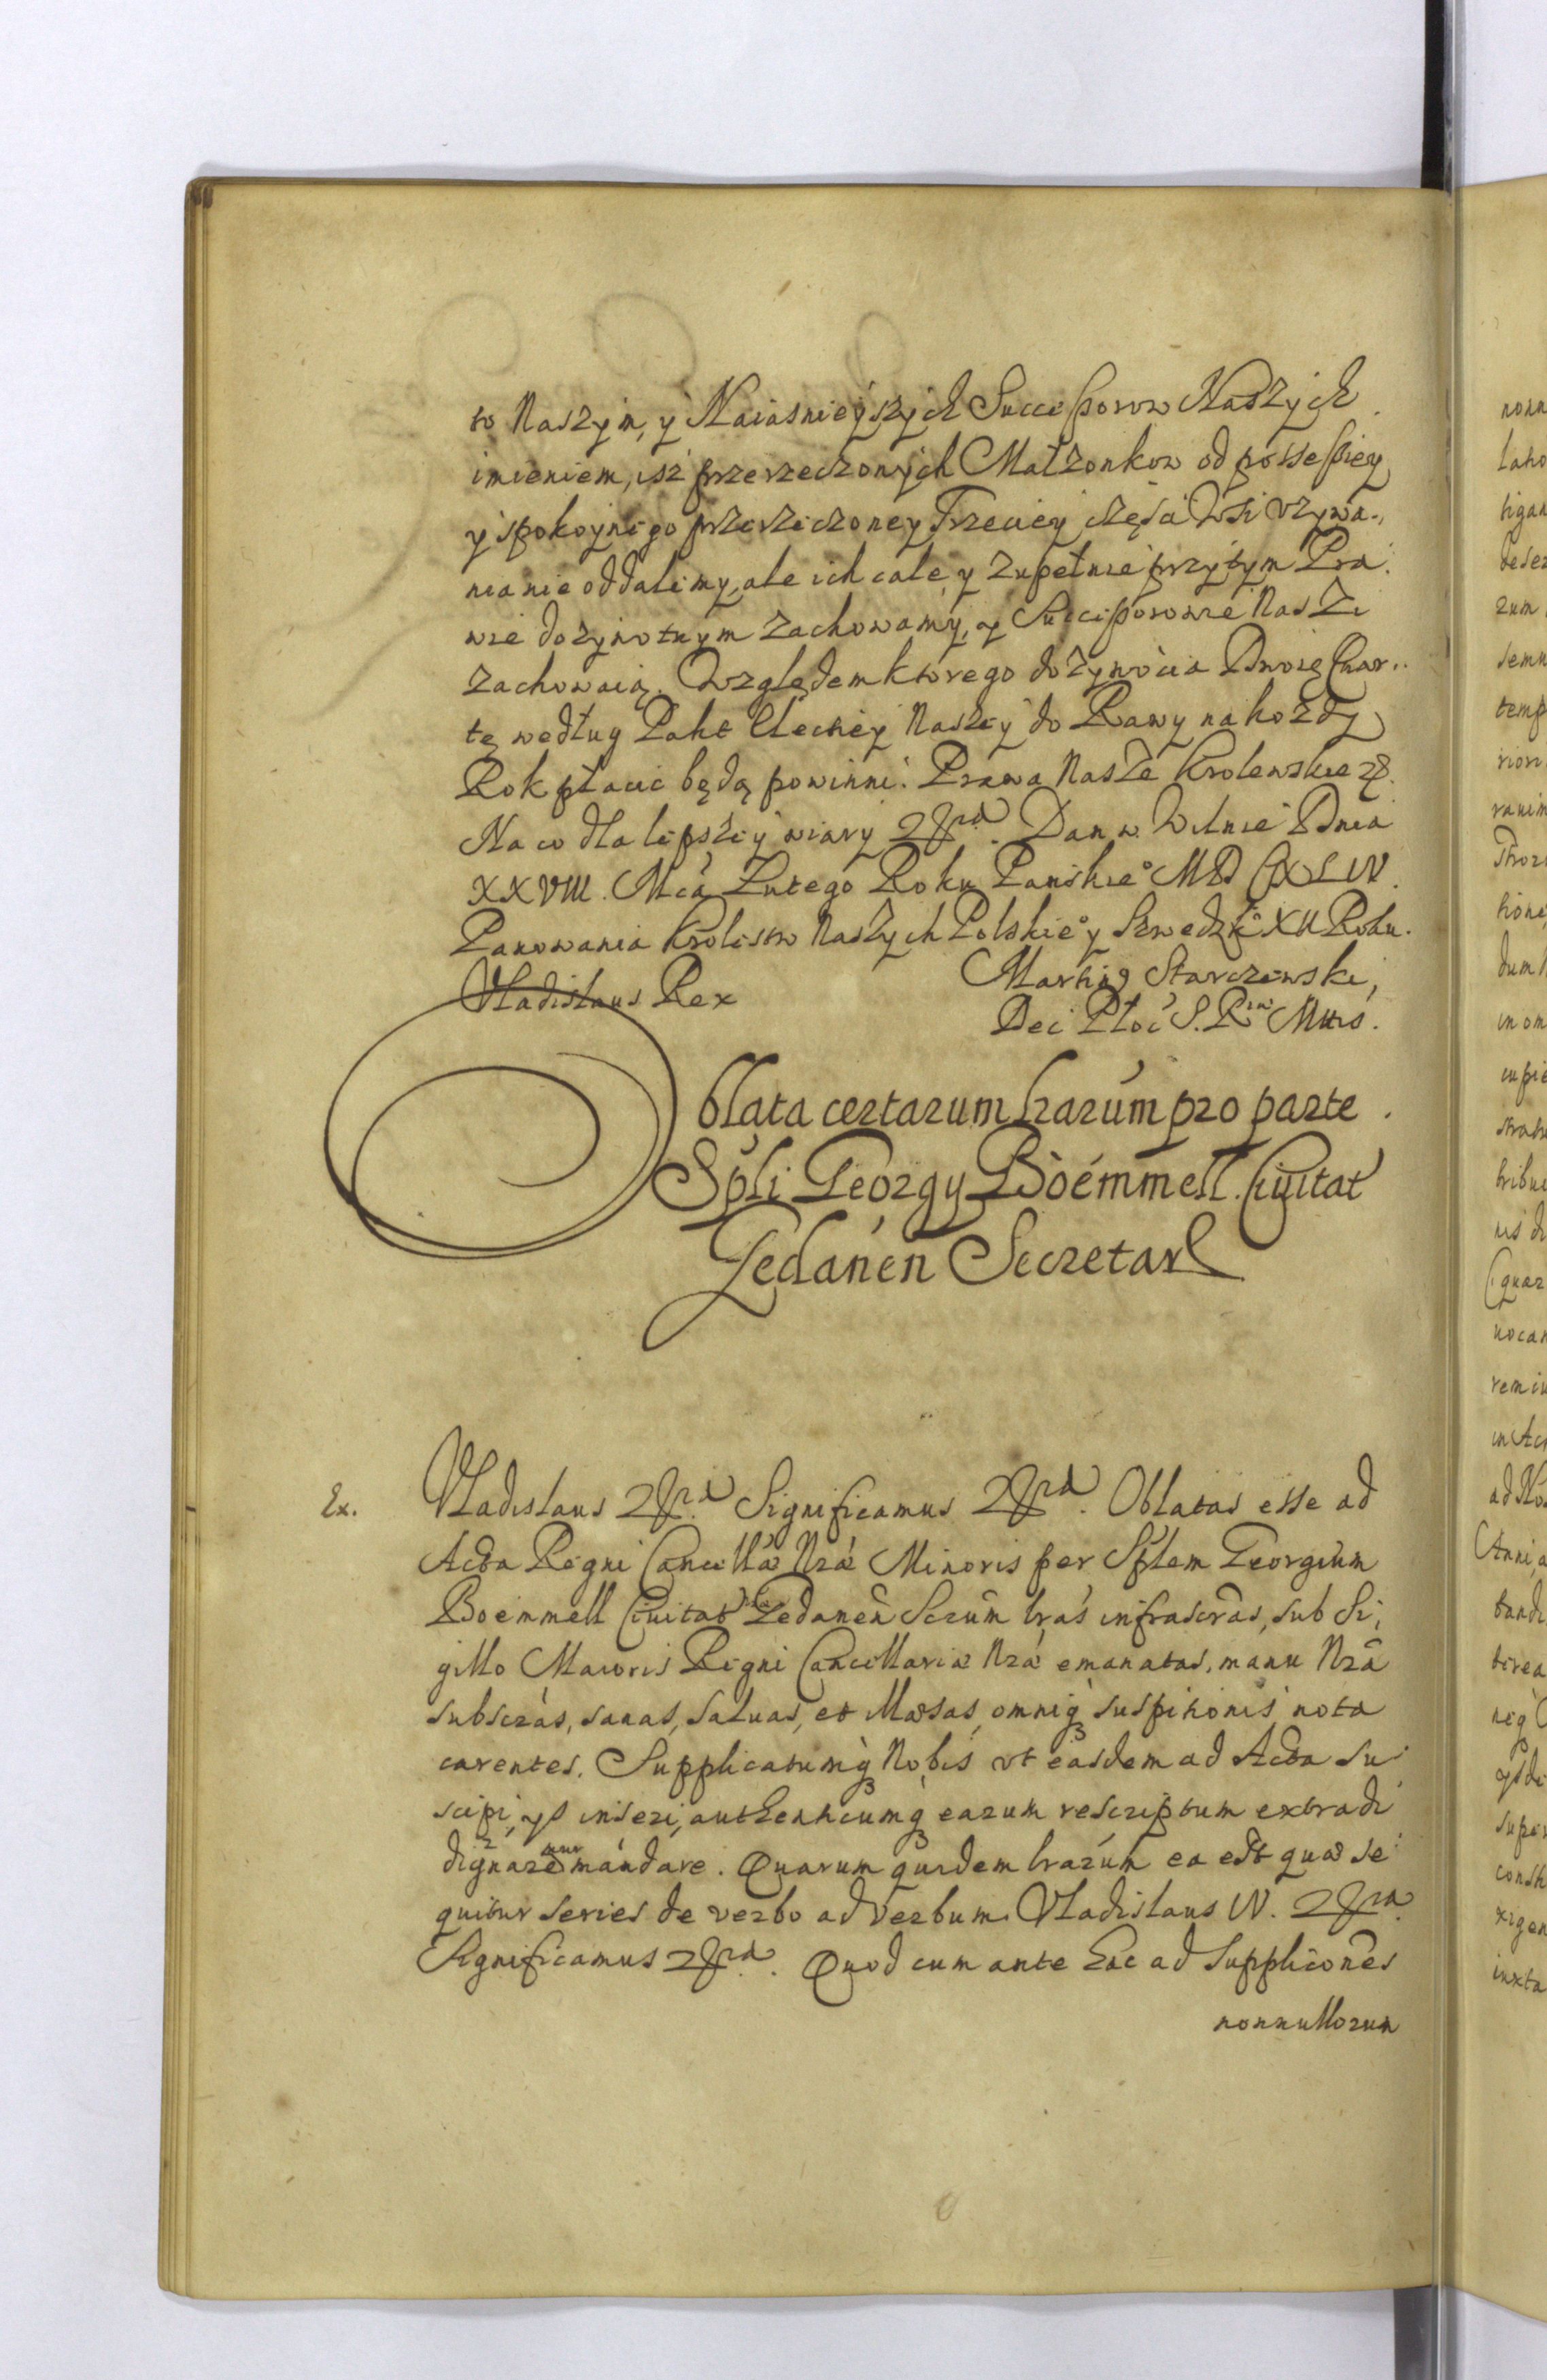 to Naszym, y Naiasnieyszych Successorow Naszych
imieniem, isz przerzeczonych Małzonkow od possessiey
y spokoynego przerzeczoney Trzeciey częsci Wsi vzywa-
nia nie oddalimy, ale ich cale y zupełnie przy tym Pra-
wie dozywotnym zachowamy, y Successorowie Naszi
zachowaią. Względem ktorego dozywocia Dwoię Quar-
tę według Pakt Electiey Naszey do Rawy na kozdy
Rok płacic będą powinni. Prawa Nasze Krolewskie etc.
Na co dla lepszey wiary etc. Dan w Wilnie Dnia
XXVIII. Mca Lutego Roku Panskieo MDCXLIV.
Panowania Krolestw Naszych Polskieo y Szwedzko XII Roku.
Vladislaus Rex
Martinus Starczewski,
Dec Płoc S. Rm Mttis.
Oblata certarum lrarum pro parte
Spli Georgy Boemmell Civitat
Gedanen Secretar
Ex.
Vladislaus etc. Significamus etc. Oblatas esse ad
Acta Regni Cancellae Nrae Minoris per Splem Georgium
Boemmell Civitat Gedanen Scrum lras infrascras, sub Si-
gillo Maioris Regni Cancellariae Nrae emanatas, manu Nra
subscras, sanas, saluas, et illaesas, omniq suspitionis nota
carentes. Supplicatumq Nobis vt easdem ad Acta su-
scipi, ys inseri, authenticumq earum rescriptum extradi
dignaremur mandare. Quarum quidem lrarum ea est quae se-
quitur series de verbo ad verbum. Vladislaus IV. etc.
Significamus etc. Quod cum ante hac ad supplicones
nonnullorum